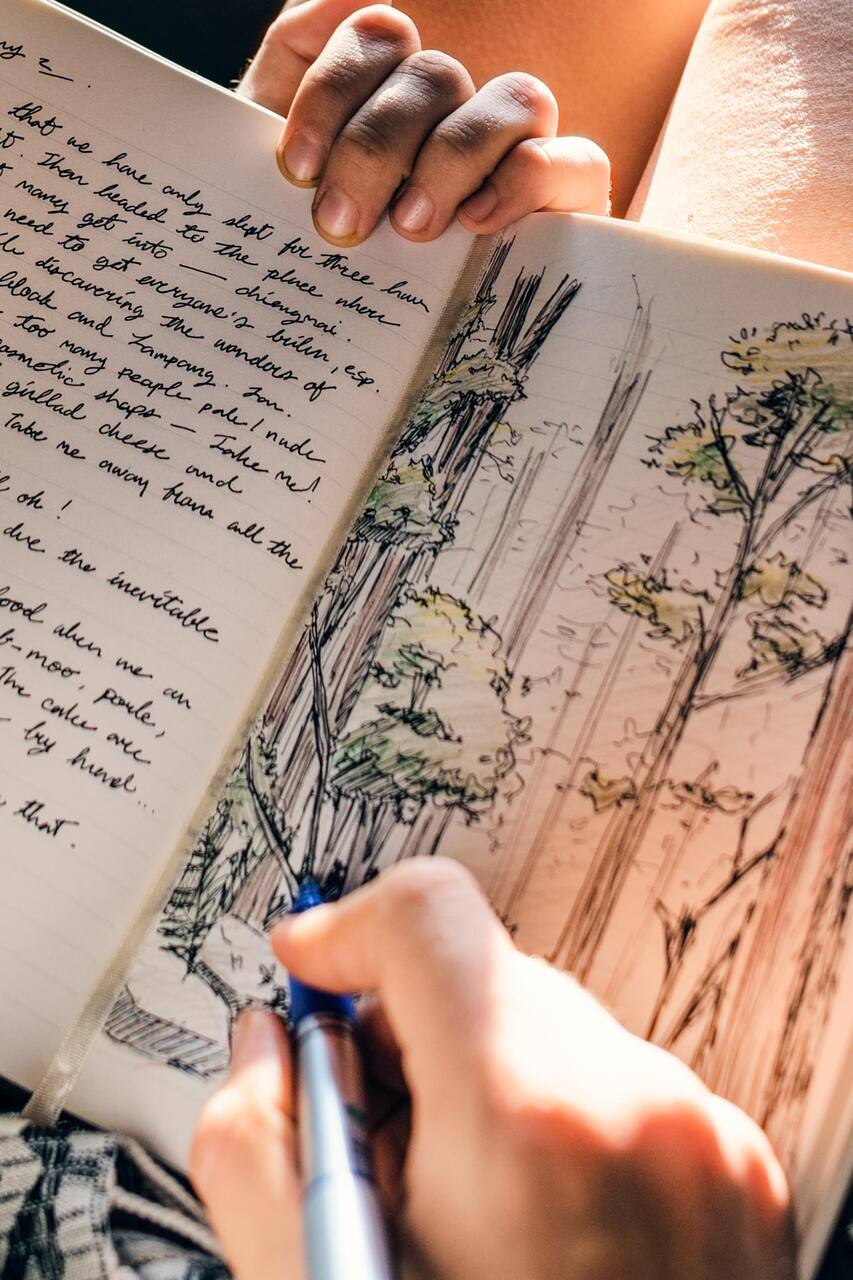 2.
that we have only slept for three hours
t. Then headed to the place where
many get into — chiengmai.
need to get everyone's bilin, esp.
discovering the wonders of
and Lampang. Zon.
too many people pale / nude
cosmetic shops — Take me!
grillad cheese and
Take me away from all the
oh!
due the inevitable
food when we an
b-moo, porle,
The cake are
by hund...
that.